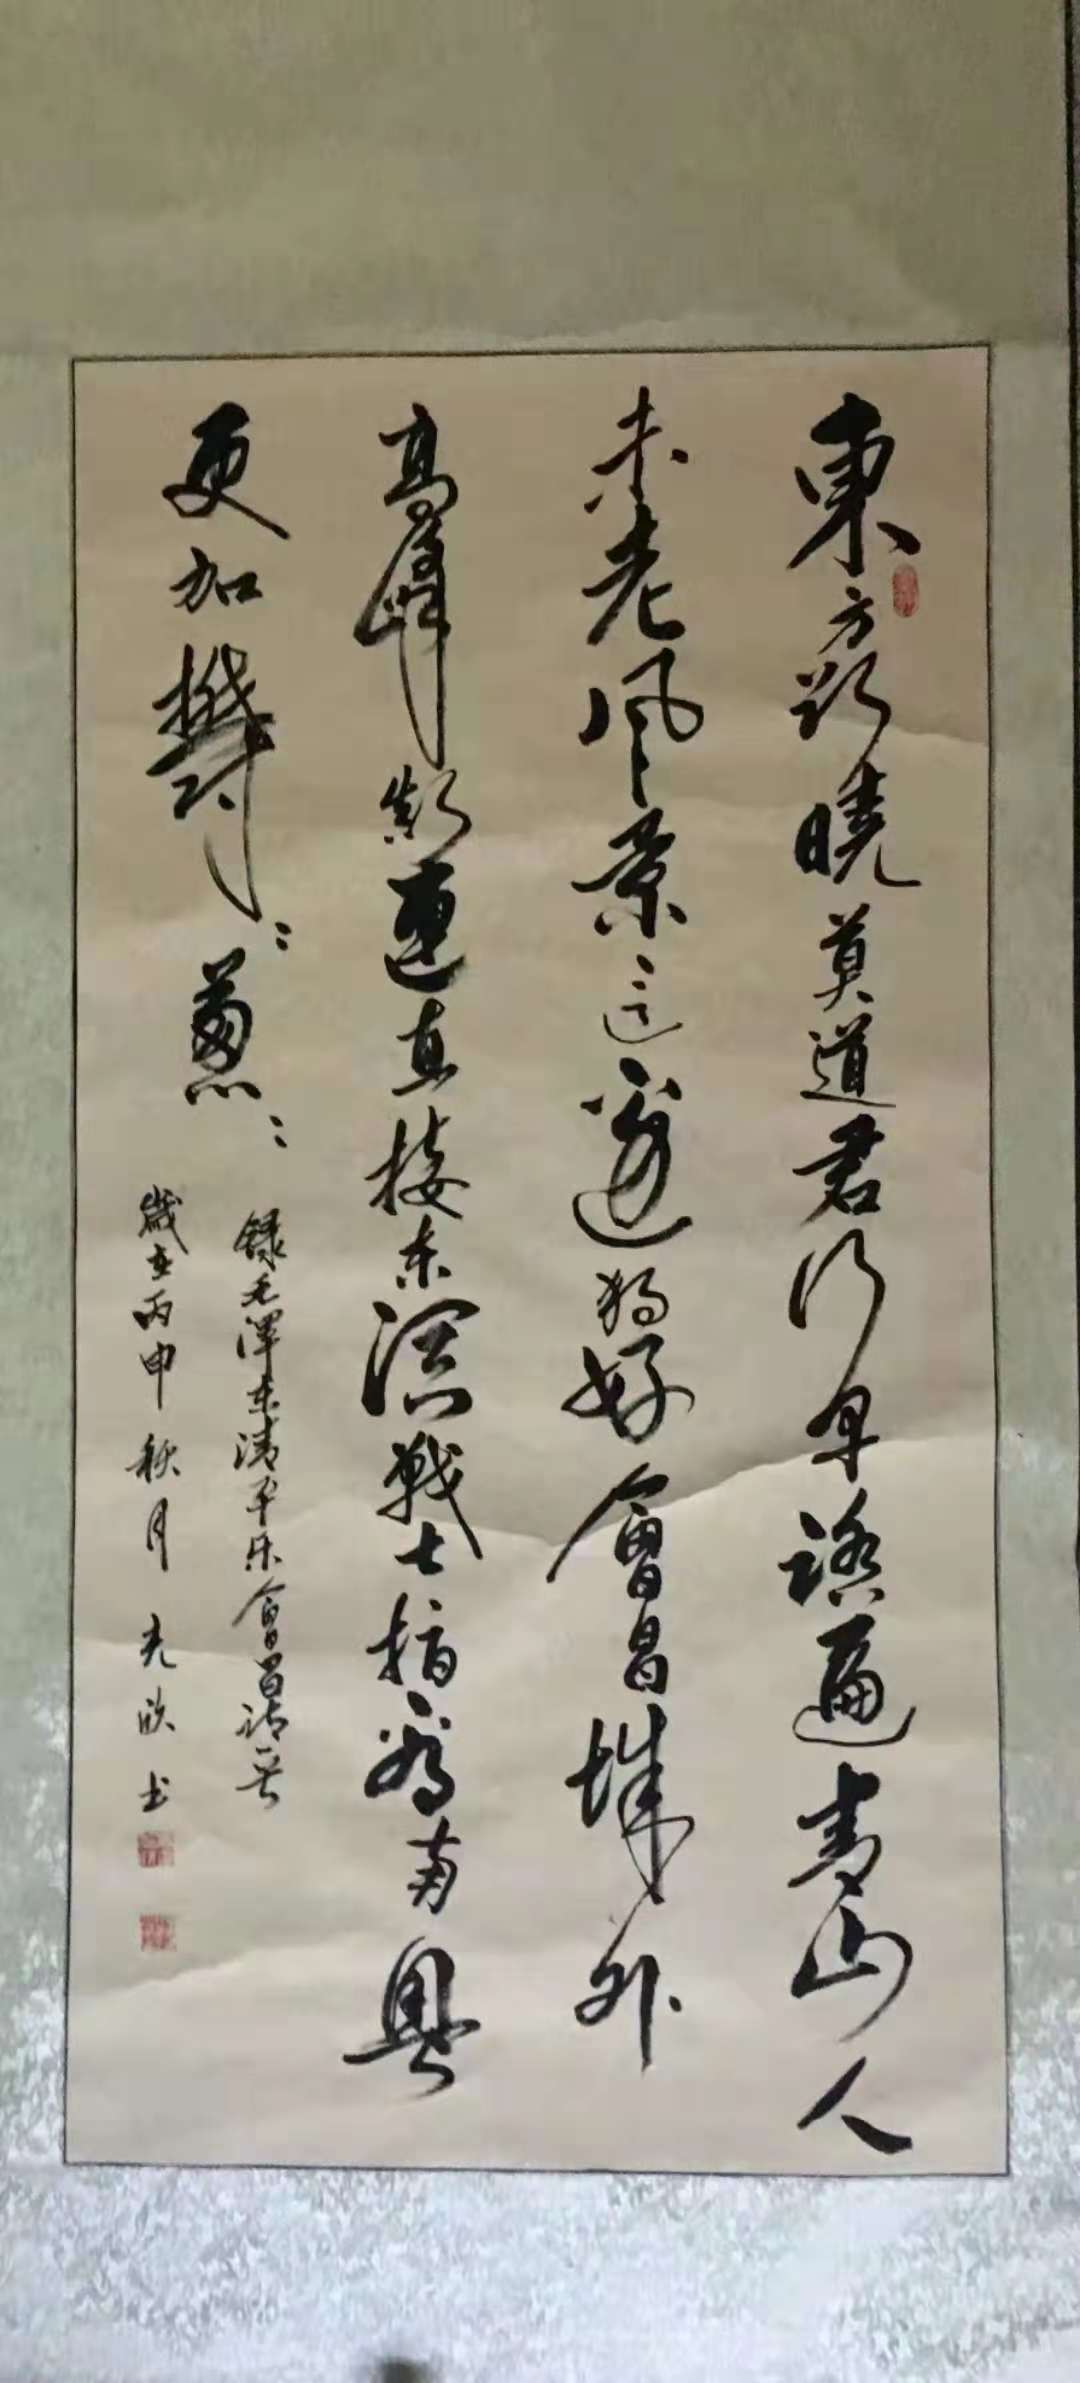 東方欲曉莫道君行早踏遍青山人
未老風景這邊獨好會昌城外
高峰顛連直接東溟戰士指看南粵
更加鬱〻蔥〻
録毛澤東清平乐會昌詞一首
歲在丙申秋月 光书